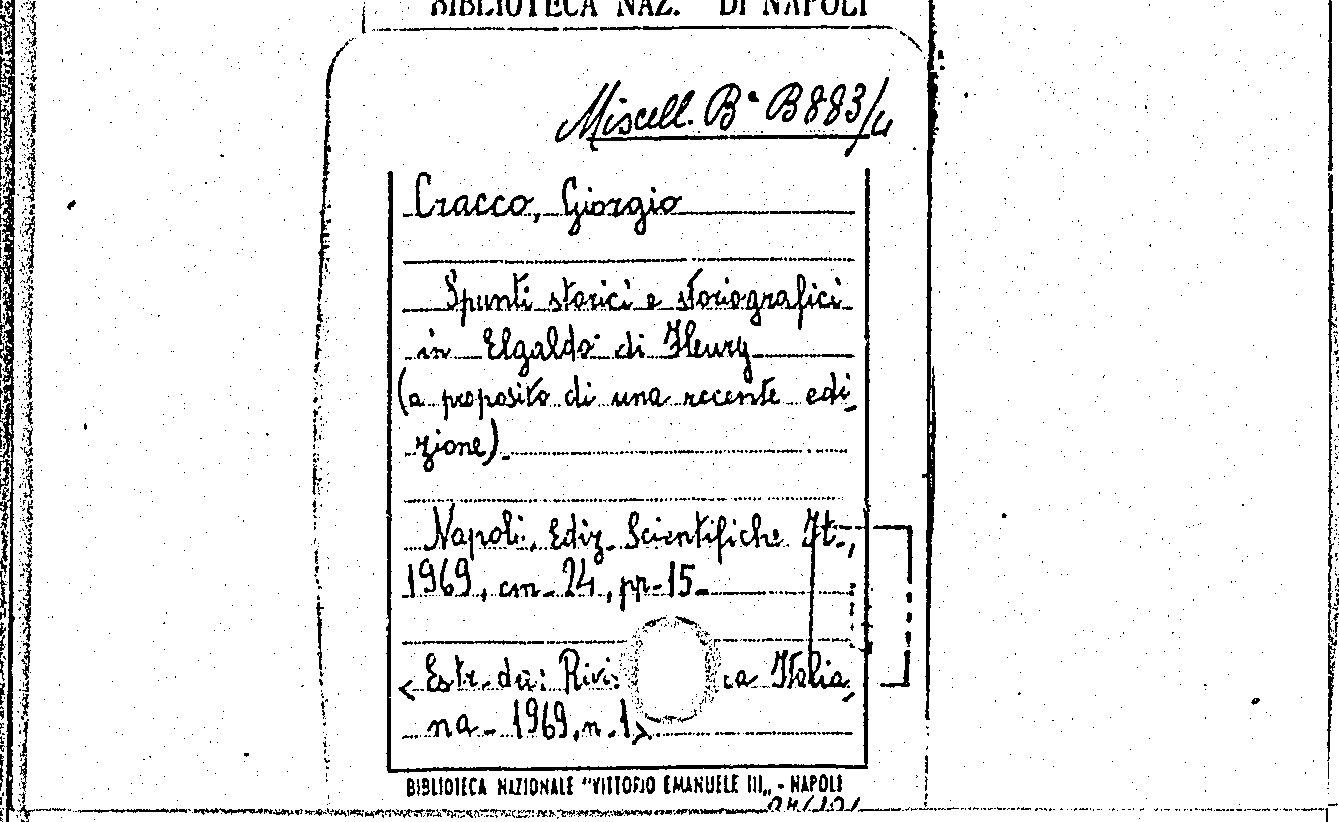 BIBLIOTECA NAZ. DI NAPOLI
Miscell. Bª B 883/4
Cracco, Giorgio
Spunti storici e storiografici
in Elgaldo di Fleury
(a proposito di una recente edi
zione).
Napoli, Ediz. Scientifiche It.,
1969, cm. 24, pp. 15.
<Estr. da: Rivis ca Italia
na. 1969, n. 1>
BIBLIOTECA NAZIONALE "VITTORIO EMANUELE III„ - NAPOLI